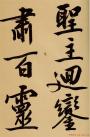 聖主迴鑾
肅百靈